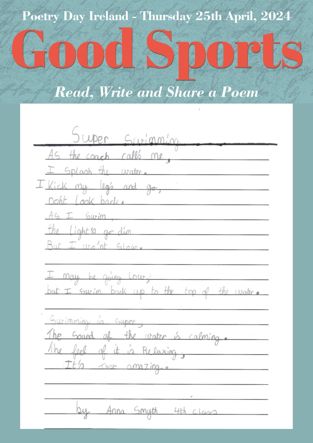 Poetry Day Ireland - Thursday 25th April, 2024
Good Sports
Read, Write and Share a Poem
Super Swimming
As the coach calls me,
I splash the water.
I Kick my legs and go,
Don't Look back.
As I swim,
the lights go dim
But I won't slow.
I may be going low,
but I swim back up to the top of the water.
Swimming is super,
The sound of the water is calming.
the feel of it is Relaxing,
It's amazing.
by Anna Smyth 4th class